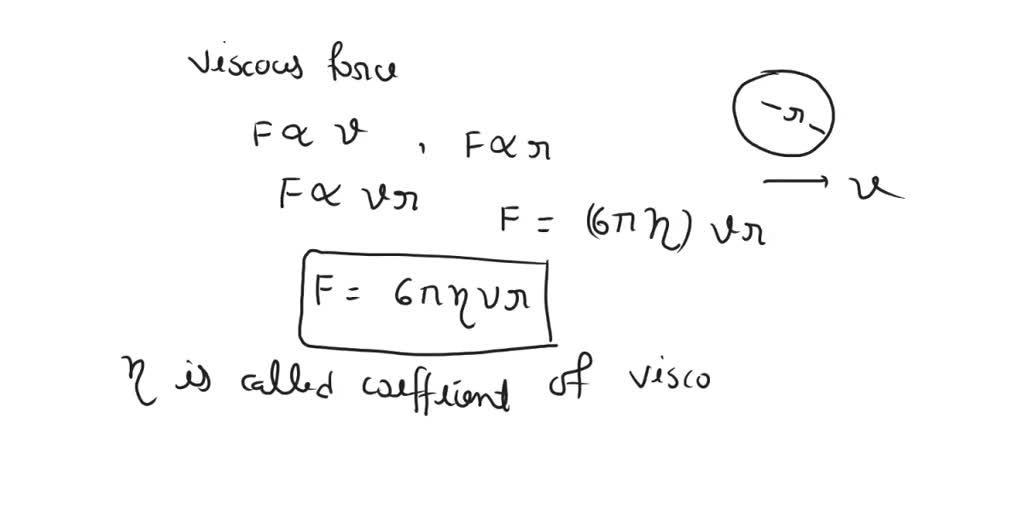 viscous force
F ∝ v , F ∝ r
F ∝ vr
F = (6πη) vr
F = 6πηvr
η is called coefficient of visco
r
v